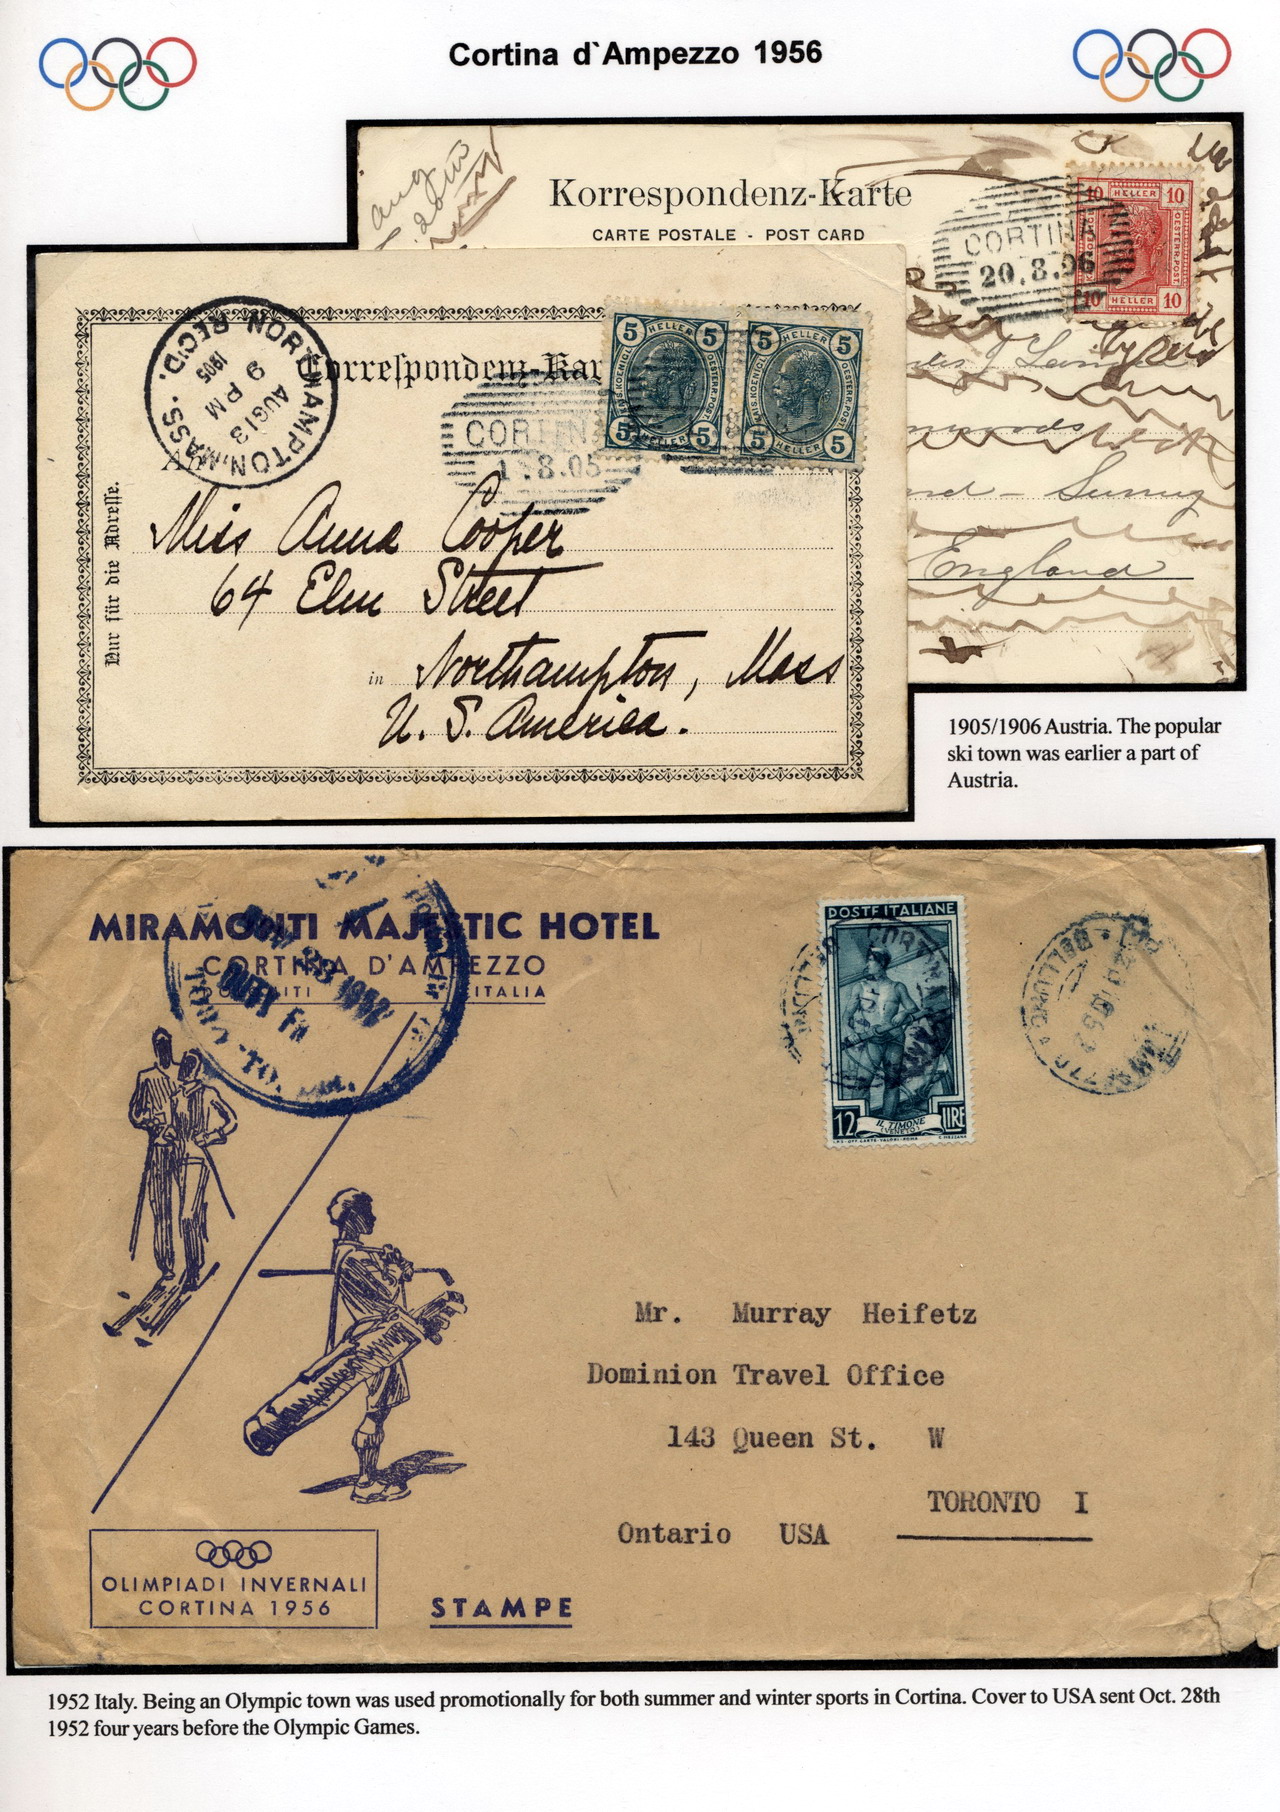 Cortina d`Ampezzo 1956
Aug
Korrespondenz-Karte
CARTE POSTALE - POST CARD
CORTINA
20.8.06
10 HELLER 10
10 HELLER 10
OESTERR.POST
England
NORTHAMPTON, MASS.
REC'D.
AUG 13
9 PM
1905
Correspondenz-Kar
CORTINA
8.05
5 HELLER 5
KAIS.KOENIGL. OESTERR.POST.
5 HELLER 5
5 HELLER 5
OESTERR.POST.
5 HELLER 5
An
Nur für die Adresse.
Miss Anna Cooper
64 Elm Street
in Northampton, Mass
U. S. America.
1905/1906 Austria. The popular
ski town was earlier a part of
Austria.
MIRAMONTI MAJESTIC HOTEL
CORTINA D'AMPEZZO
ITALIA
1952
POSTE ITALIANE
12 LIRE
IL TIMONE
(VENETO)
BELLUNO
Mr. Murray Heifetz
Dominion Travel Office
143 Queen St. W
TORONTO I
Ontario USA
OLIMPIADI INVERNALI
CORTINA 1956
STAMPE
1952 Italy. Being an Olympic town was used promotionally for both summer and winter sports in Cortina. Cover to USA sent Oct. 28th
1952 four years before the Olympic Games.